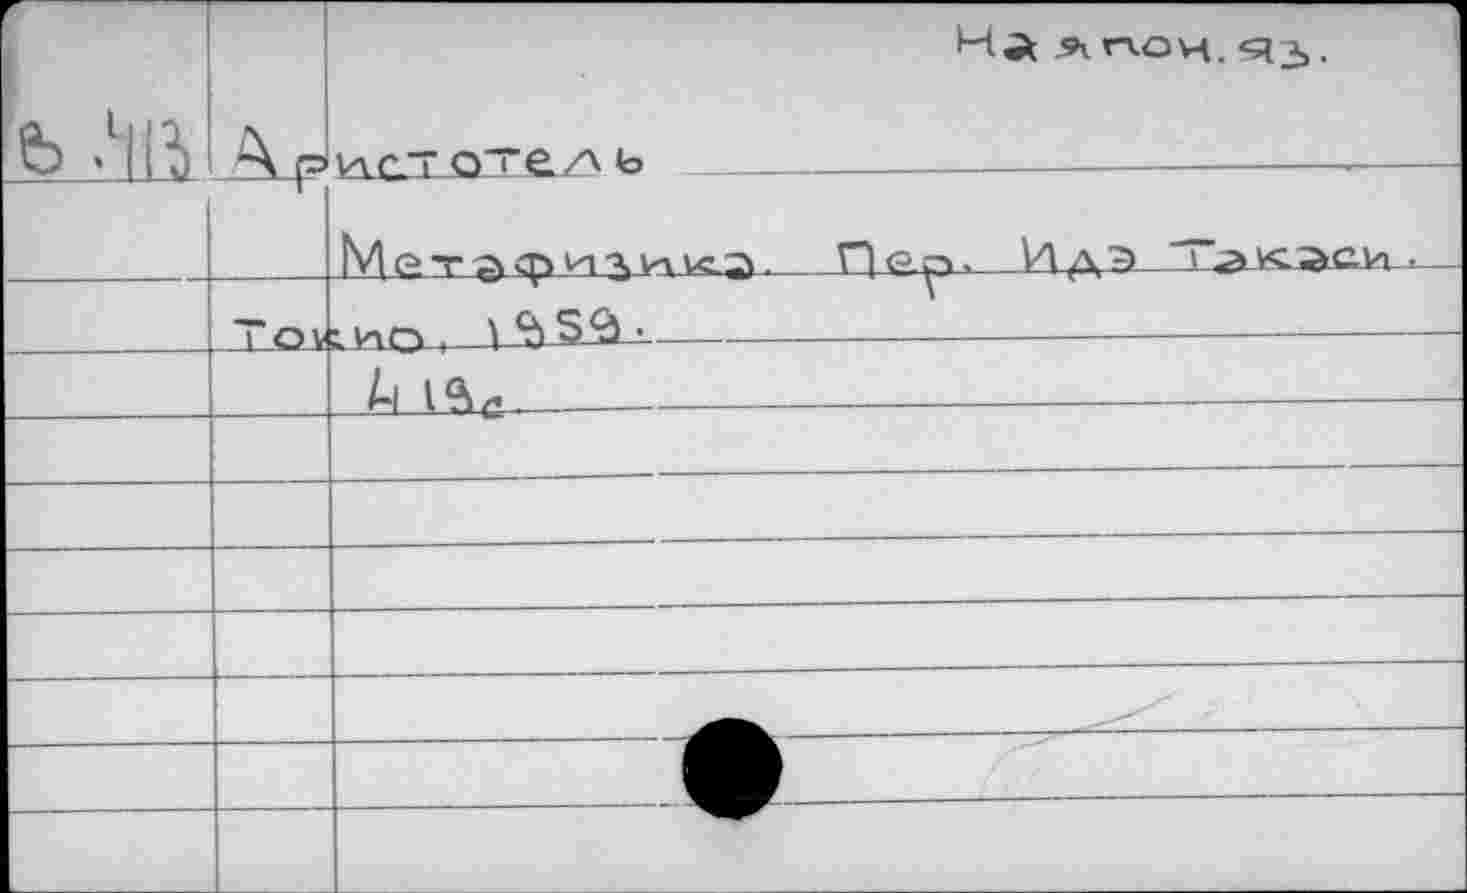 На япон. яз.
Аристотель
Метафизика. Пер. Идэ Такаси.
Токио, 1959.
419с.